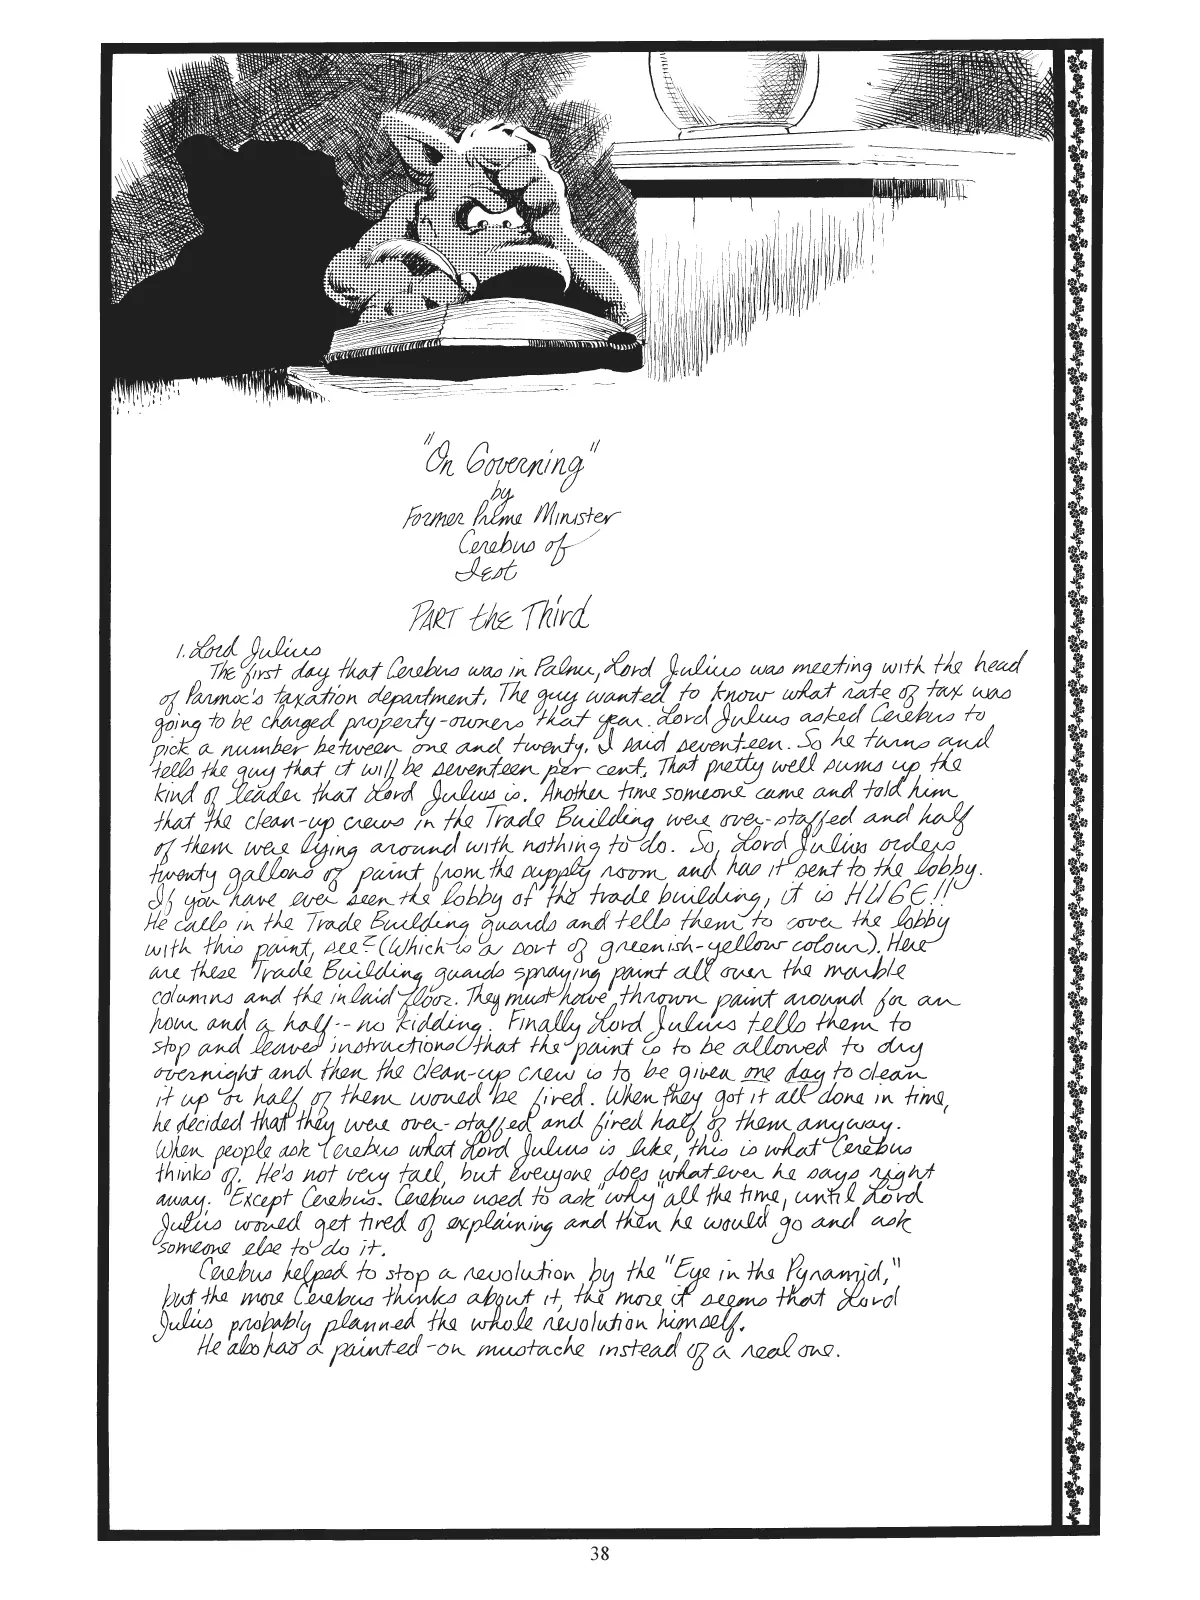 "On Governing"
by
Former Prime Minister
Cerebus of
Iest
PART the Third
1. Lord Julius
The first day that Cerebus was in Palnu, Lord Julius was meeting with the head
of Parmoc's taxation department. The guy wanted to know what rate of tax was
going to be charged property-owners that year. Lord Julius asked Cerebus to
pick a number between one and twenty. I said seventeen. So he turns and
tells the guy that it will be seventeen per cent. That pretty well sums up the
kind of leader that Lord Julius is. Another time someone came and told him
that the clean-up crews in the Trade Building were over-staffed and half
of them were lying around with nothing to do. So, Lord Julius orders
twenty gallons of paint from the supply room and has it sent to the lobby.
If you have ever seen the lobby of the trade building, it is HUGE!!
He calls in the Trade Building guards and tells them to cover the lobby
with this paint, see? (Which is a sort of greenish-yellow colour). Here
are these Trade Building guards spraying paint all over the marble
columns and the inlaid floor. They must have thrown paint around for an
hour and a half -- no kidding. Finally Lord Julius tells them to
stop and leaves instructions that the paint is to be allowed to dry
overnight and then the clean-up crew is to be given one day to clean
it up or half of them would be fired. When they got it all done in time,
he decided that they were over-staffed and fired half of them anyway.
When people ask Cerebus what Lord Julius is like, this is what Cerebus
thinks of. He's not very tall, but everyone does whatever he says right
away. Except Cerebus. Cerebus used to ask "why" all the time, until Lord
Julius would get tired of explaining and then he would go and ask
someone else to do it.
Cerebus helped to stop a revolution by the "Eye in the Pyramid,"
but the more Cerebus thinks about it, the more it seems that Lord
Julius probably planned the whole revolution himself.
He also has a painted-on mustache instead of a real one.
38